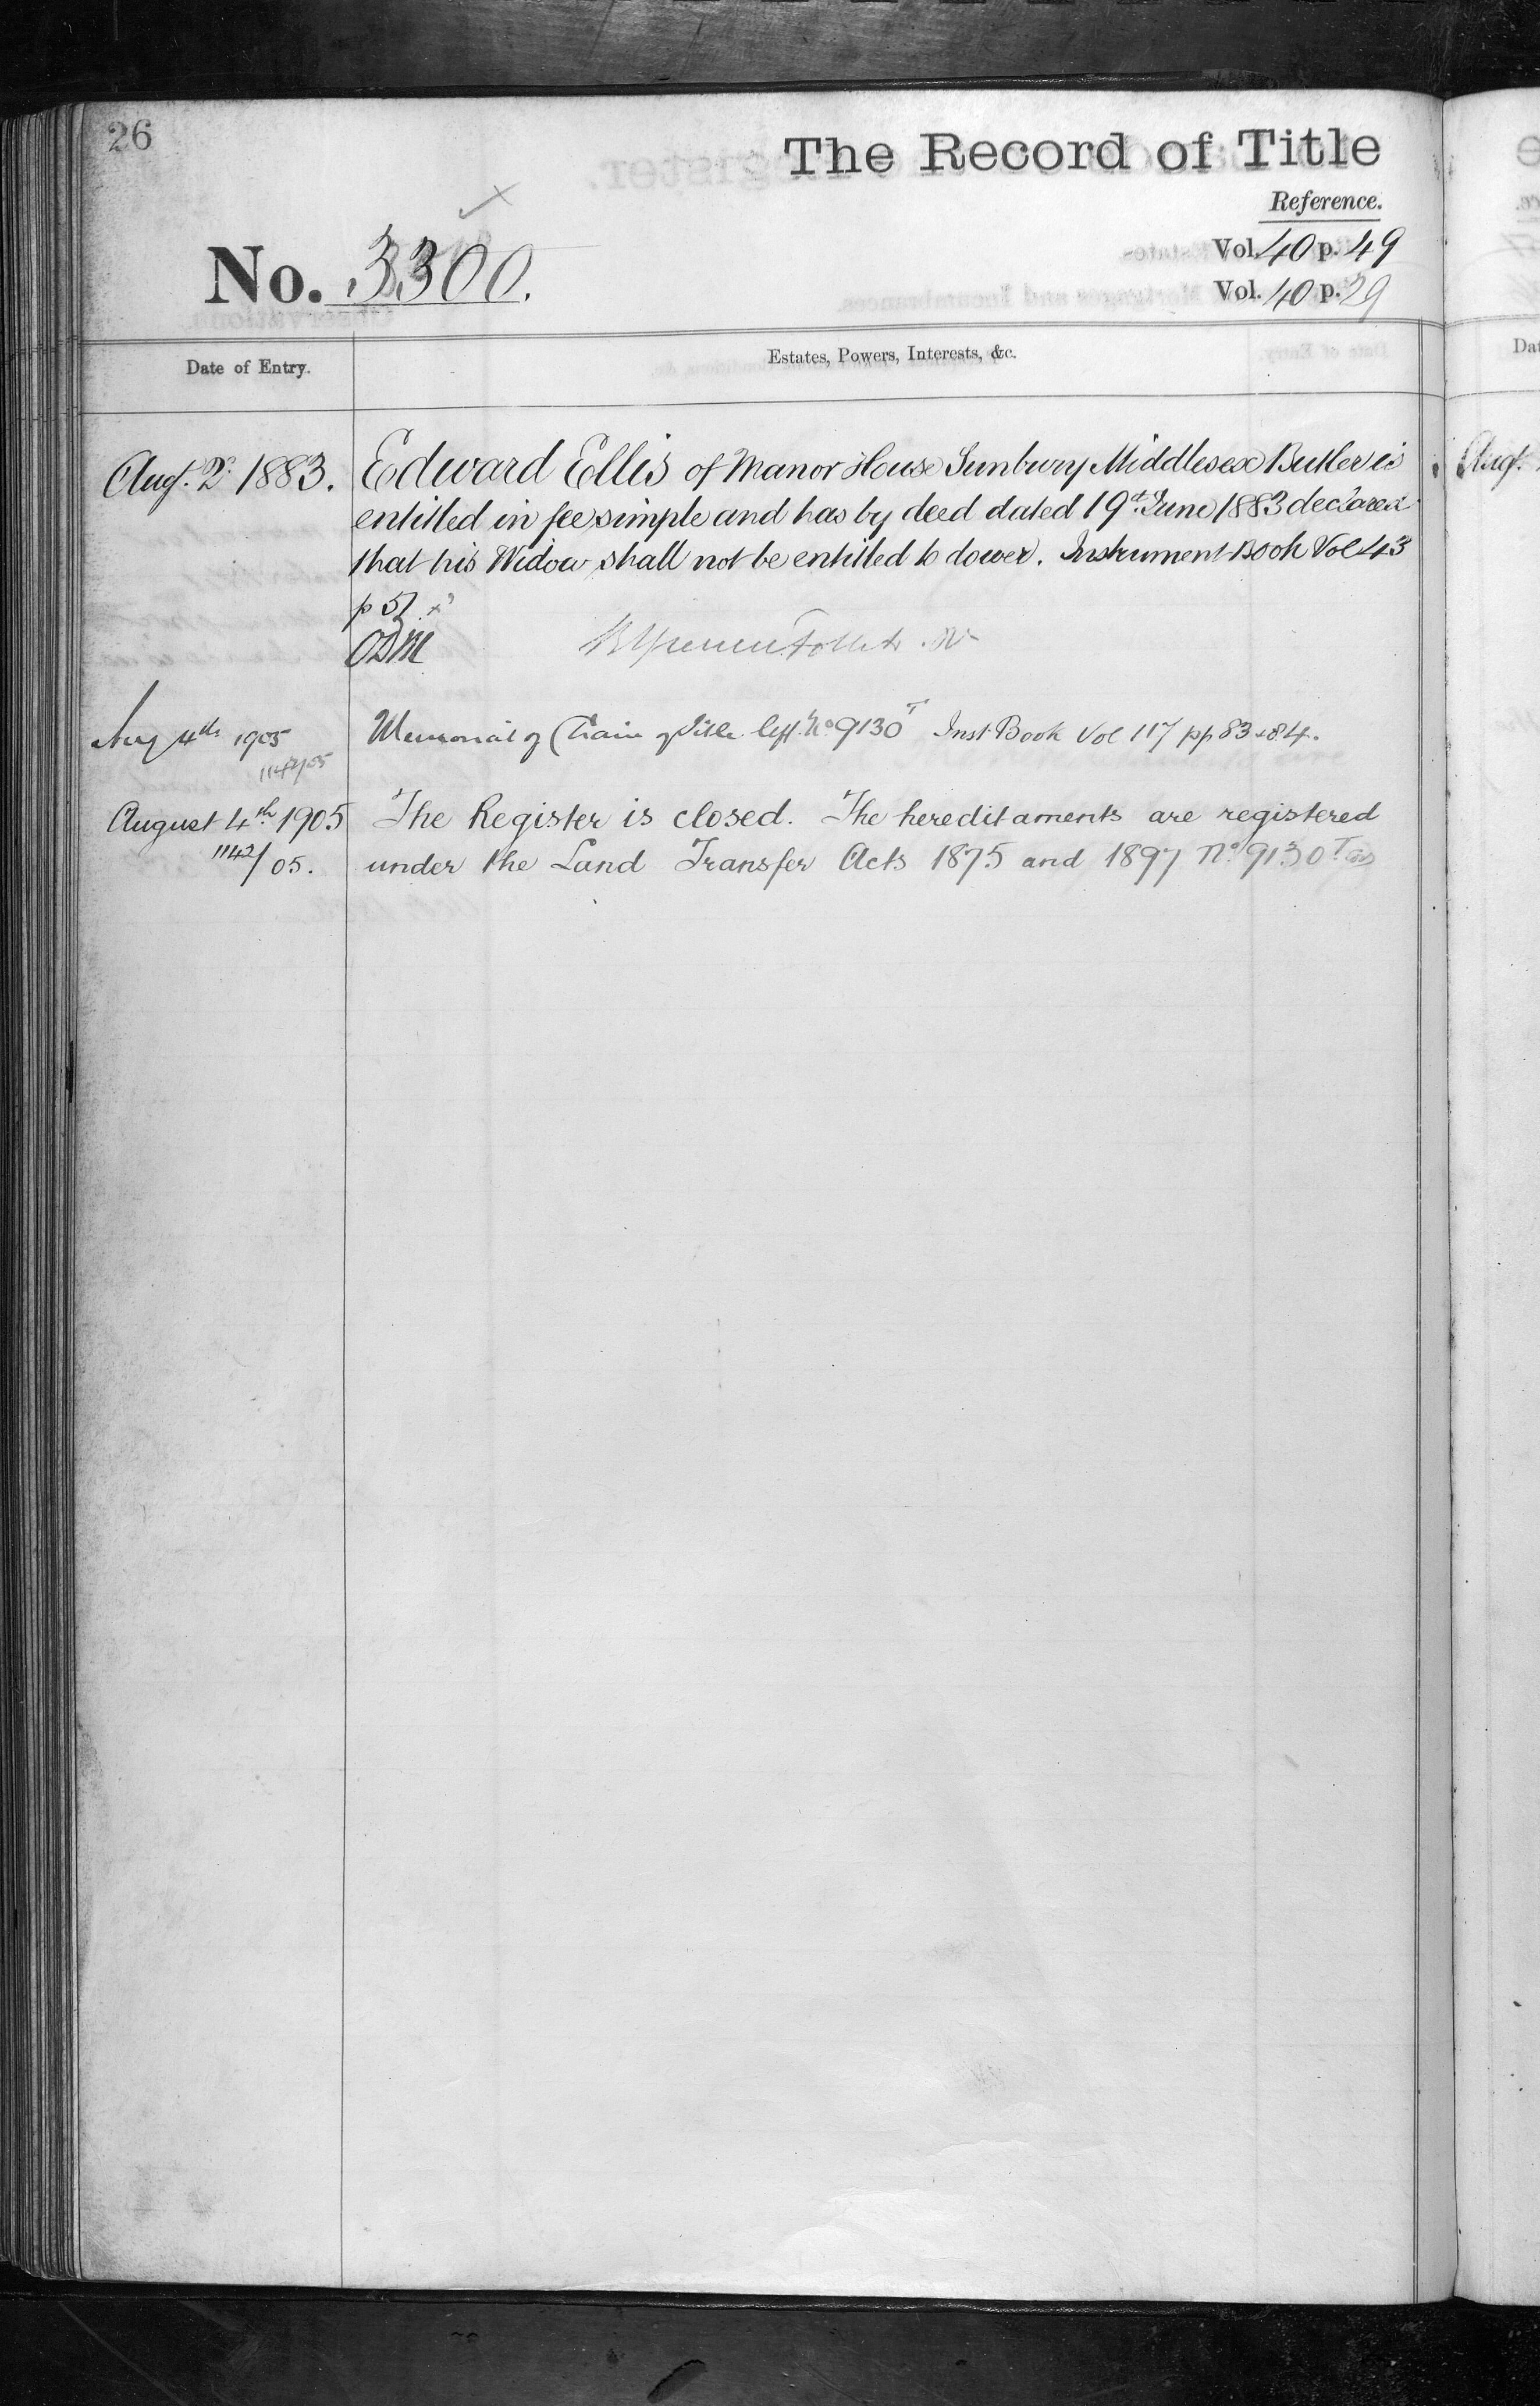 26
The Record of Title
Reference.
No. 3300.
Vol. 40 p. 49
Vol. 40 p. 29
Date of Entry.
Estates, Powers, Interests, &c.
Augt. 2d. 1883. Edward Ellis of Manor House Sunbury Middlesex Butler is
entitled in fee simple and has by deed dated 19th June 1883 declared
that his Widow shall not be entitled to dower. Instrument Book Vol 43
p 57
Aug 4th 1905 Memorial of Chain of Title left No 9130T Inst Book Vol 117 pp 83 & 84.
1142/05
August 4th 1905 The Register is closed. The hereditaments are registered
1142/05. under the Land Transfer Acts 1875 and 1897 No 9130T
Augt.